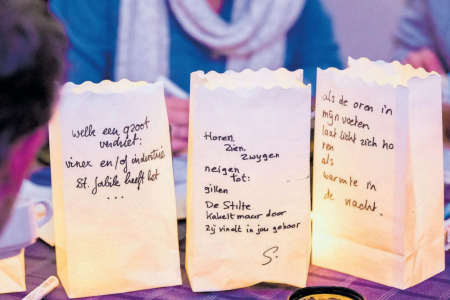 welk een groot
verdriet:
vinex en/of industrie
St. Jabik heeft het
...
Horen,
Zien,
Zwygen
neigen
tot:
gillen
De Stilte
kabelt maar door
Zij vindt in jou gehoor
S.
als de oren in
mijn voeten
laat licht zich ho
ren
als
warmte in
de nacht.